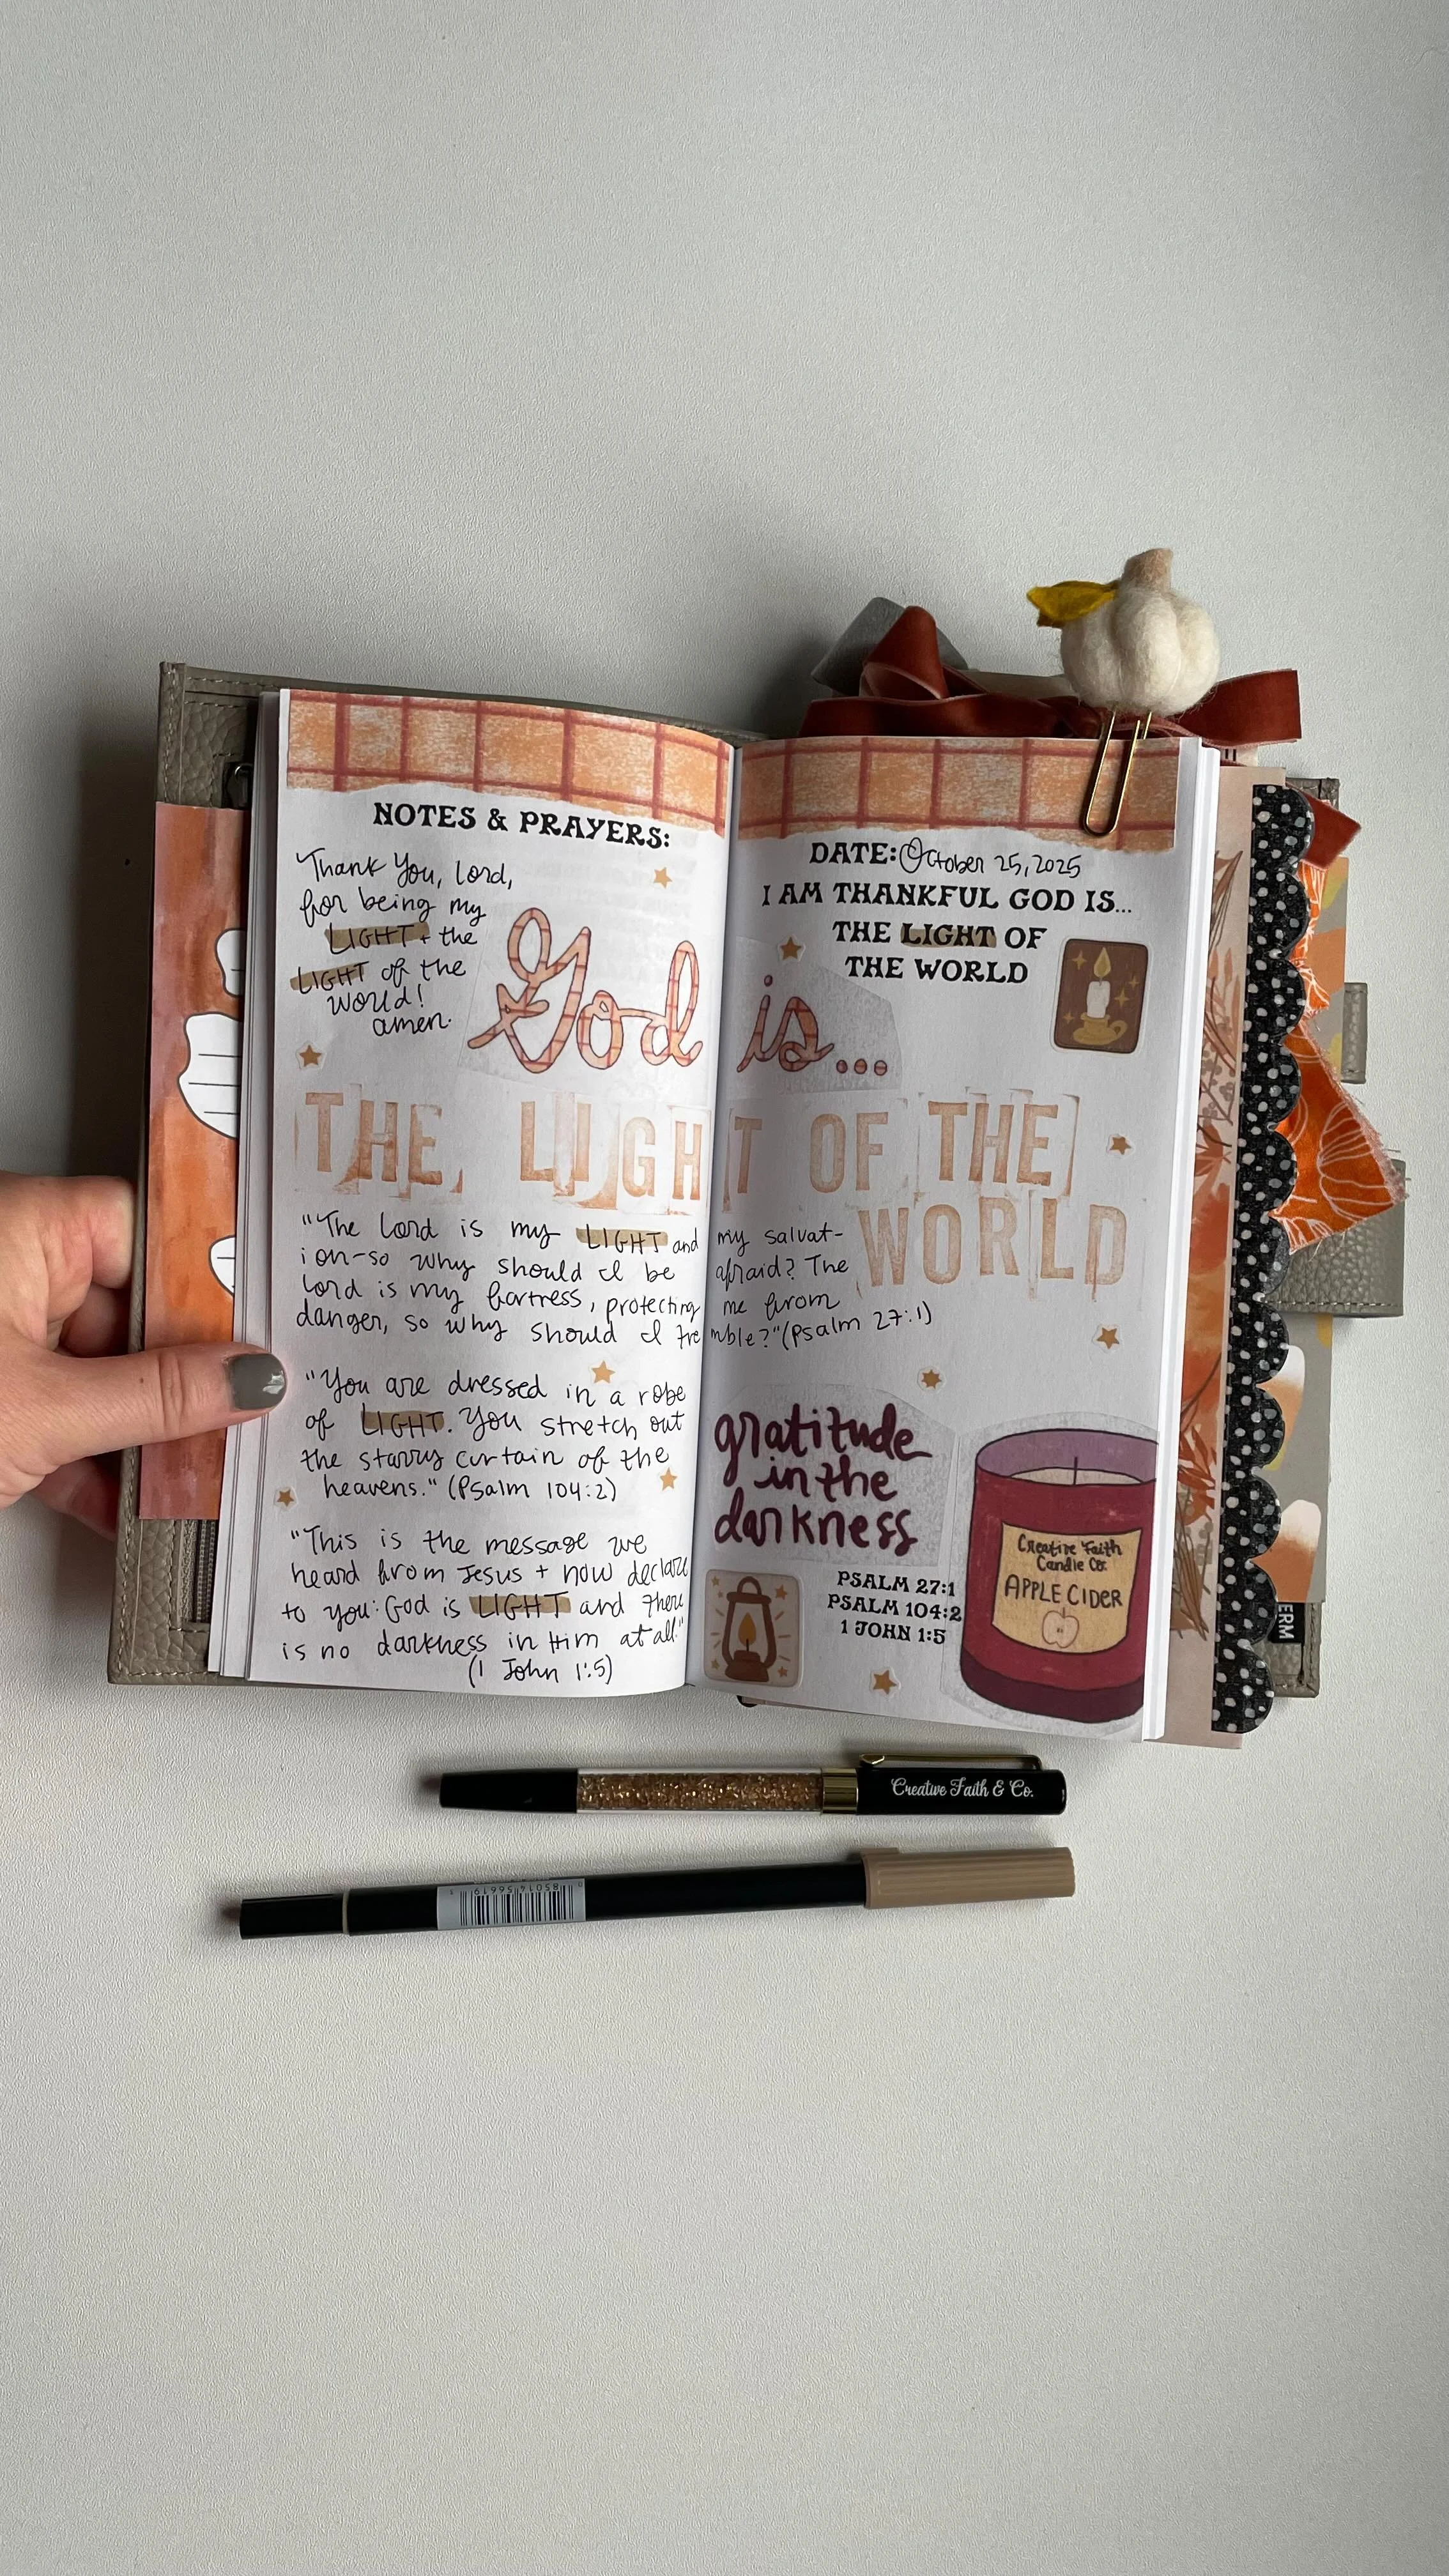 NOTES & PRAYERS:
Thank You, Lord,
for being my
LIGHT + the
LIGHT of the
world!
amen.
DATE: October 25, 2025
I AM THANKFUL GOD IS...
THE LIGHT OF
THE WORLD
God is...
THE LIGHT OF THE
WORLD
"The Lord is my LIGHT and my salvat-
ion-so why should I be afraid? The
Lord is my fortress, protecting me from
danger, so why should I tremble?" (Psalm 27:1)
"You are dressed in a robe
of LIGHT. You stretch out
the starry curtain of the
heavens." (Psalm 104:2)
"This is the message we
heard from Jesus + now declare
to you: God is LIGHT and there
is no darkness in Him at all."
(1 John 1:5)
gratitude
in the
darkness
PSALM 27:1
PSALM 104:2
1 JOHN 1:5
Creative Faith
Candle Co.
APPLE CIDER
ERM
Creative Faith & Co.